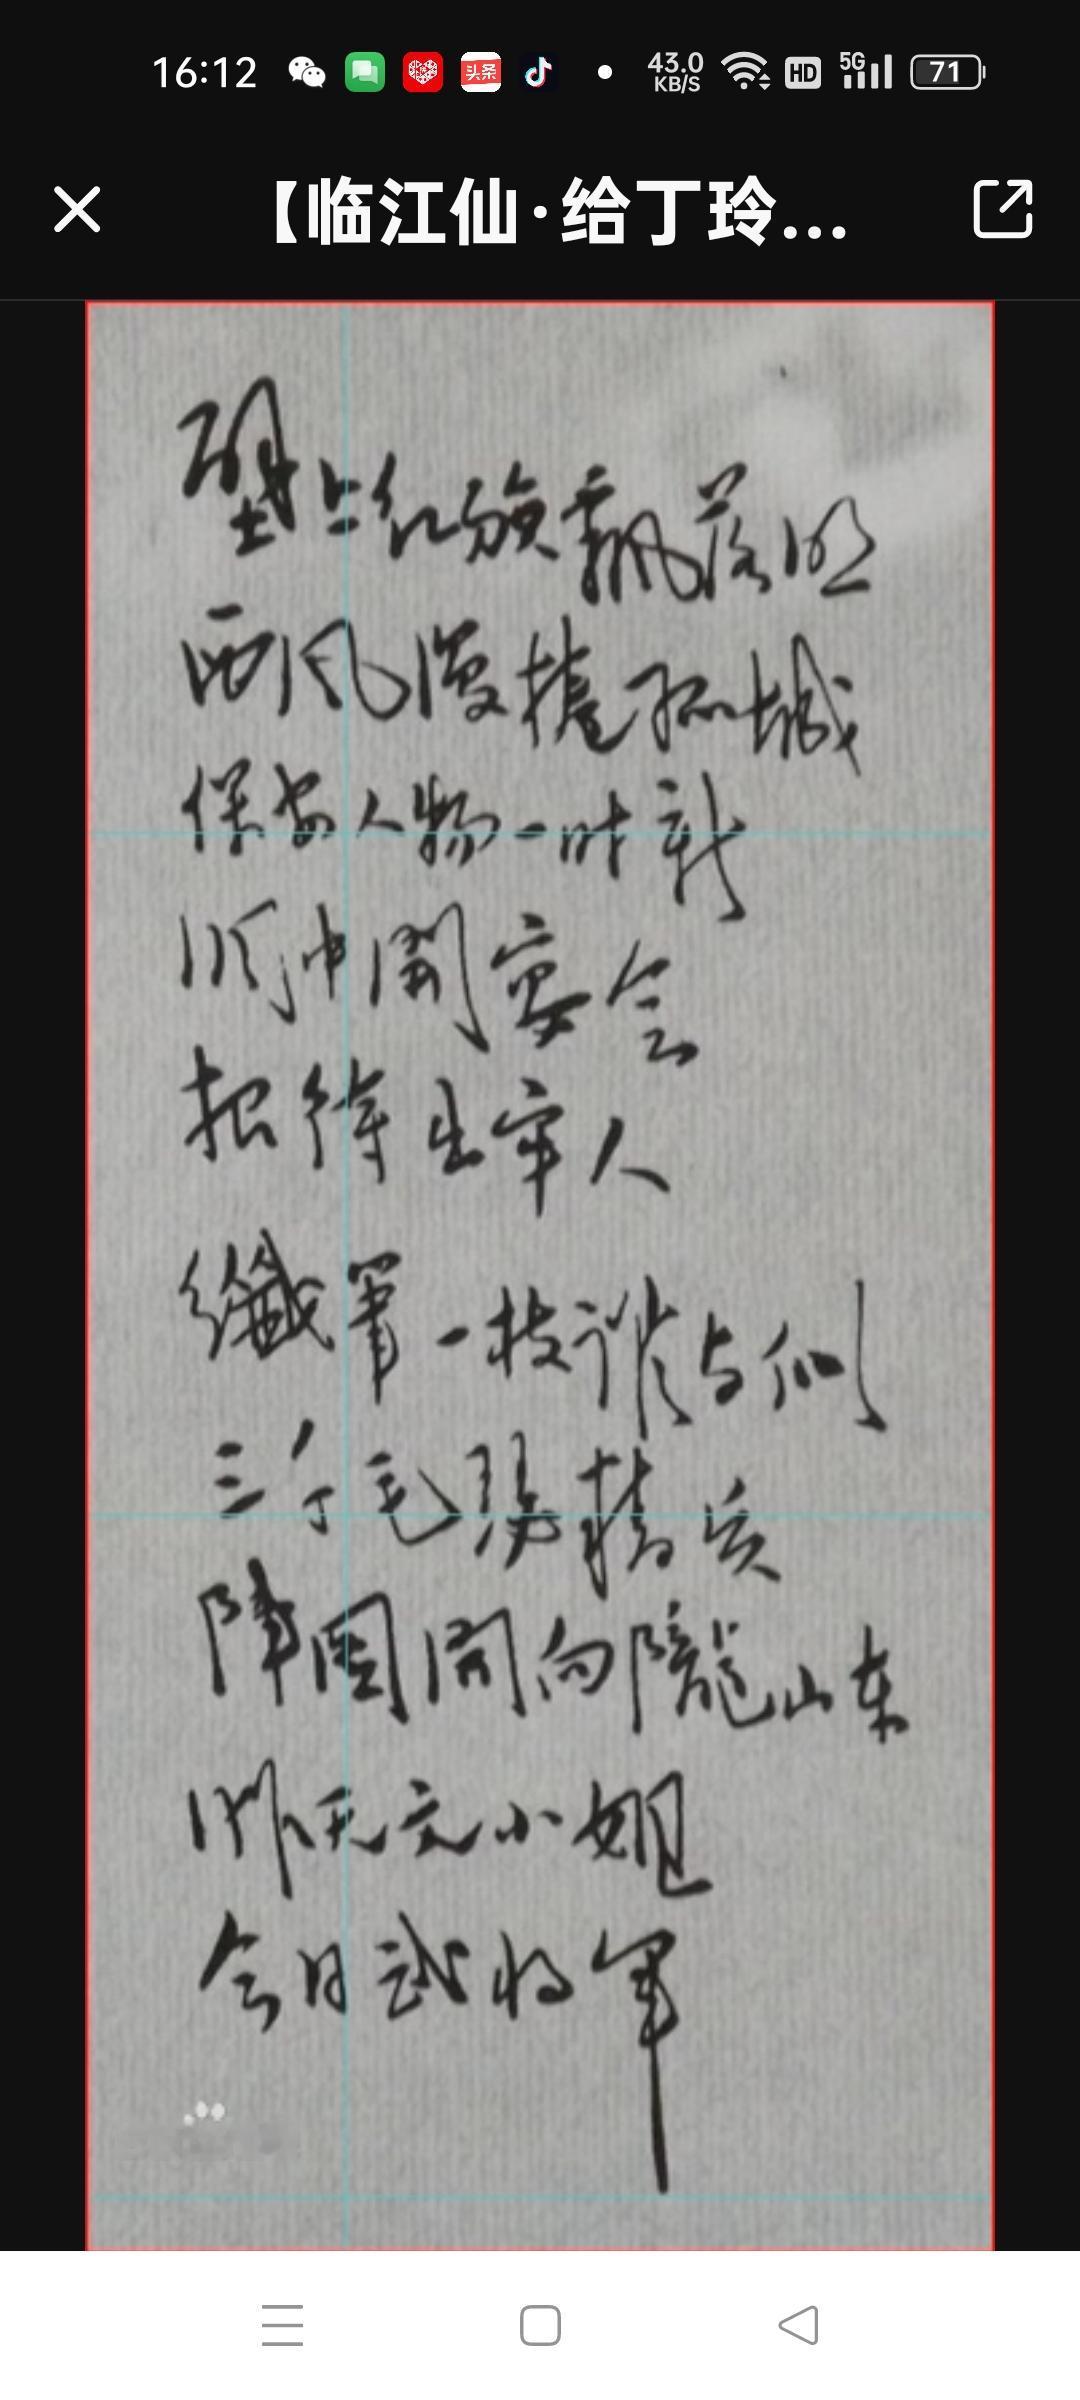 16:12 头条 43.0 KB/S HD 5G 71
【临江仙·给丁玲...
壁上红旗飘落照
西风漫捲孤城
保安人物一时新
洞中開宴会
招待出牢人
纖筆一枝誰与似
三千毛瑟精兵
陣圖開向隴山东
昨天文小姐
今日武将軍